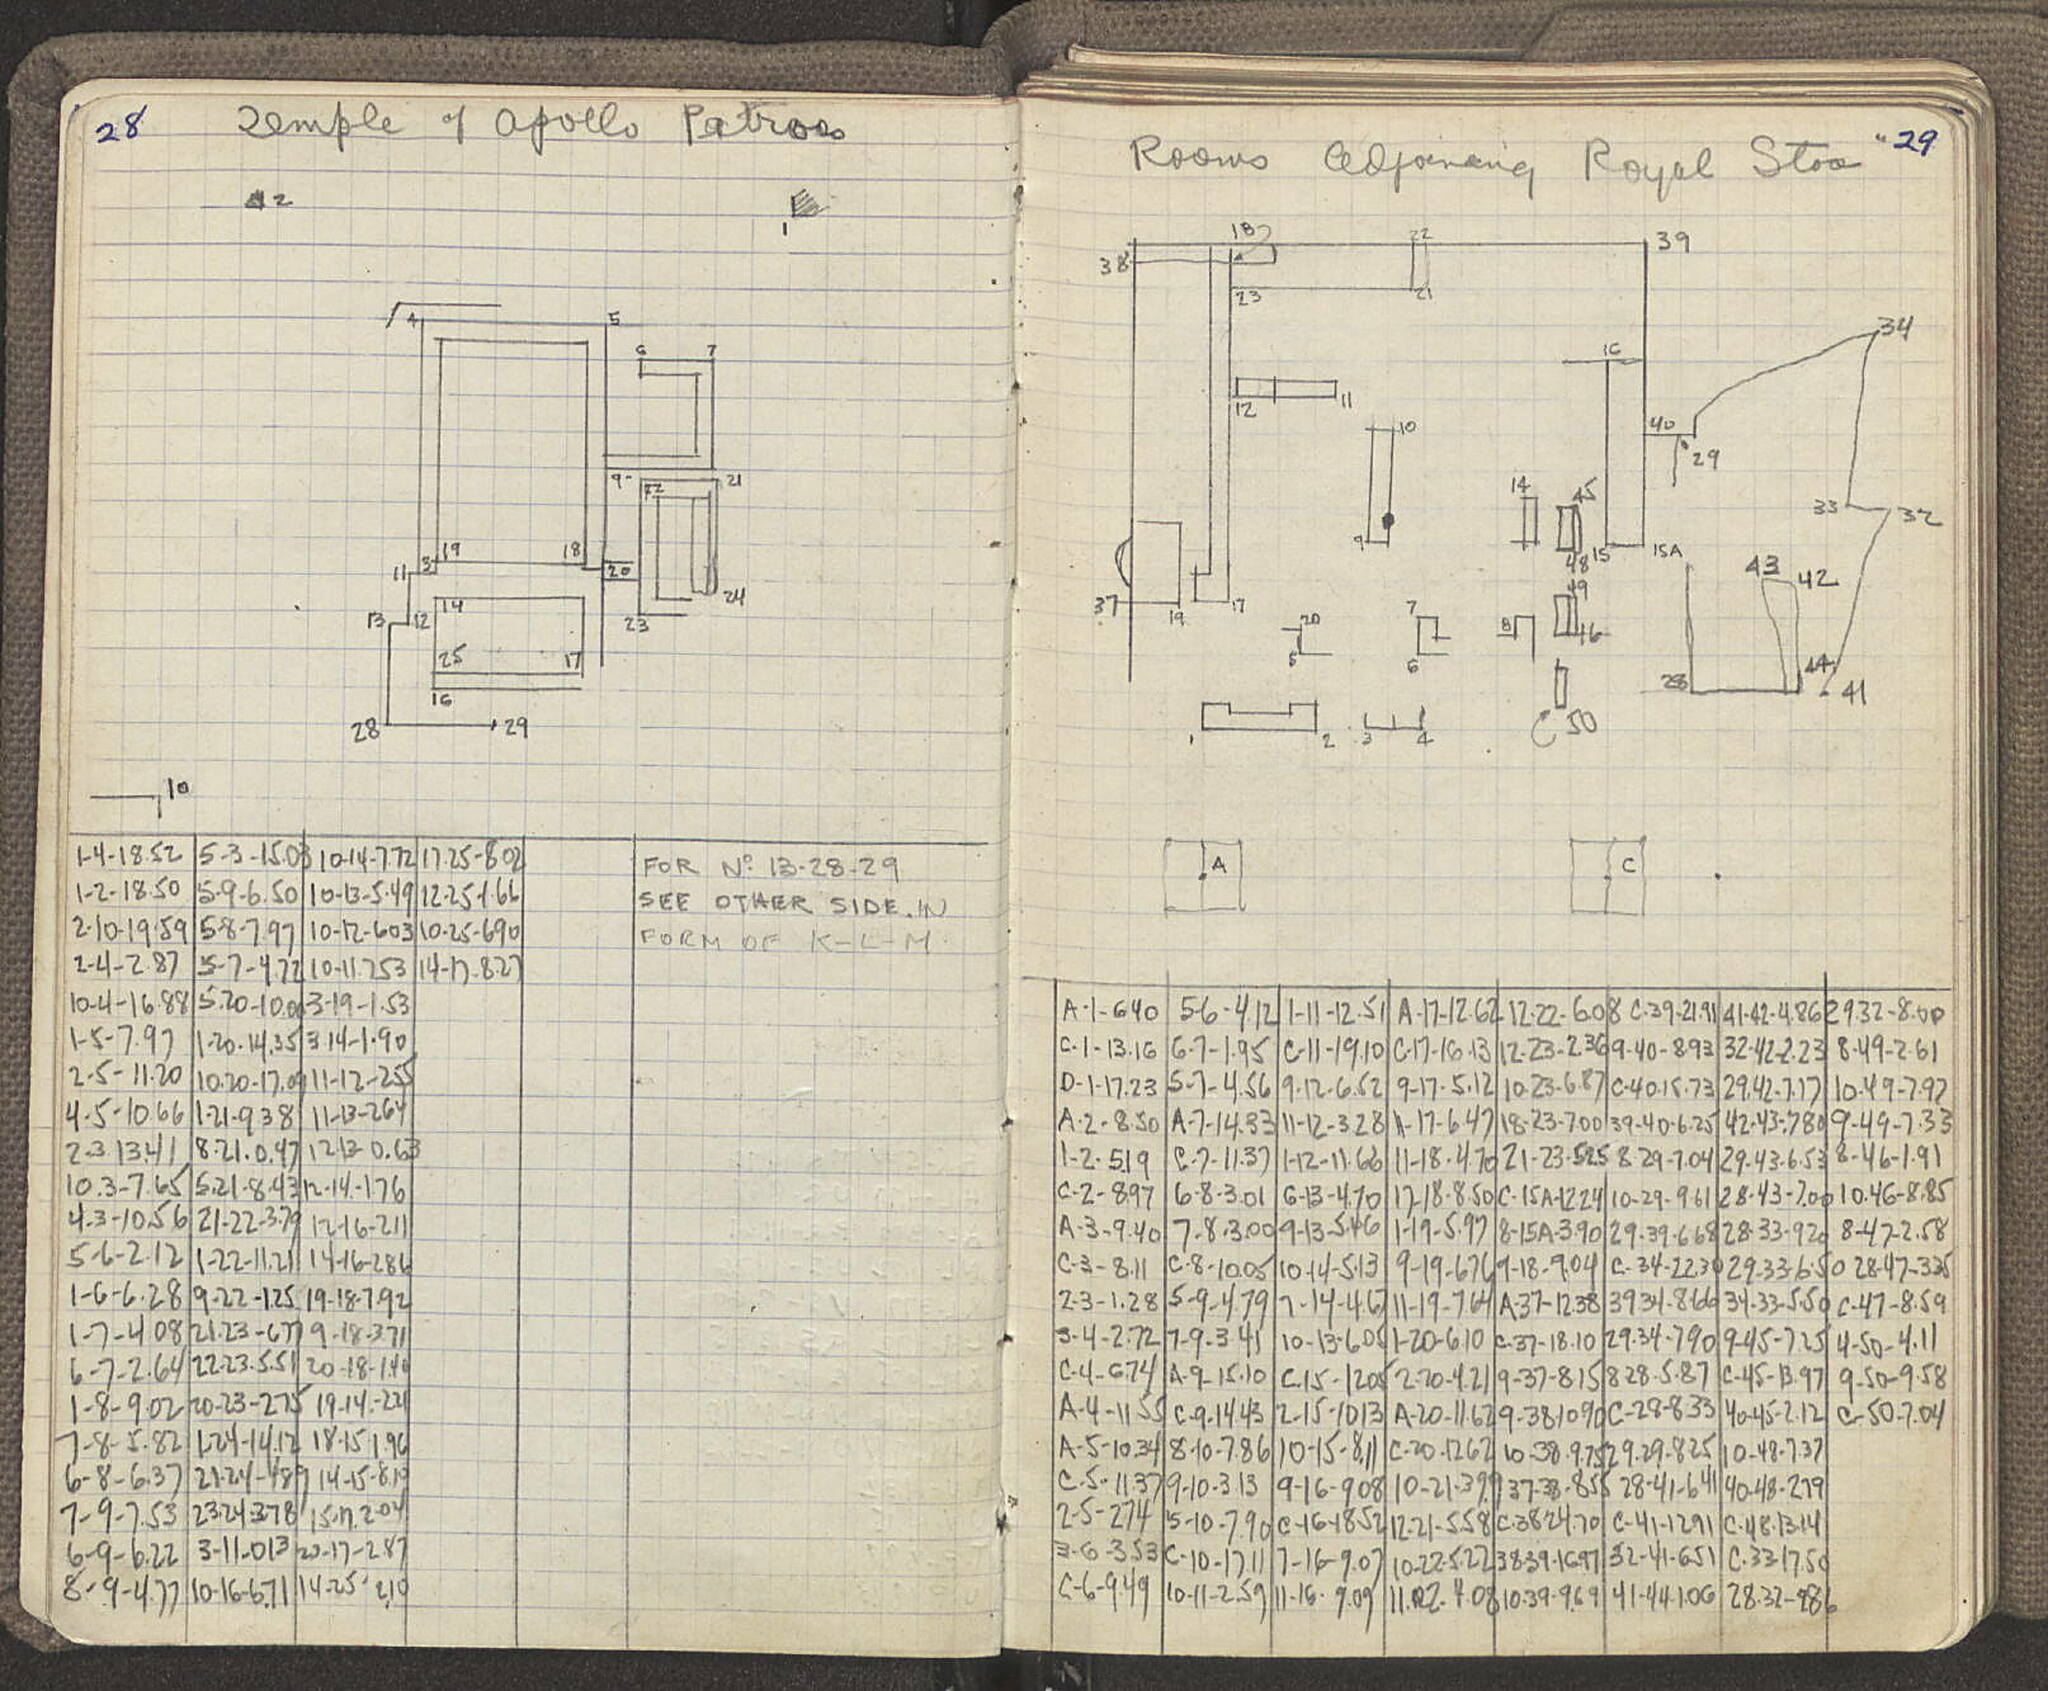 28 Temple of Apollo Patroos
2
1
4 5
6 7
9 21
22
19 18
11 3 20
24
14
13 12 23
25 17
16
28 29
10
1-4-18.52 5-3-15.03 10-14-7.72 17.25-8.02
1-2-18.50 5-9-6.50 10-13-5.49 12-25-1.66
2-10-19.59 5-8-7.97 10-12-603 10-25-690
2-4-2.87 5-7-4.72 10-11.753 14-17-8.27
10-4-16.88 5.20-10.00 3-19-1.53
1-5-7.97 1-20-14.35 3-14-1.90
2-5-11.20 10.20-17.09 11-12-255
4-5-10.66 1-21-938 11-13-264
2-3 13.41 8.21.0.47 12-13-0.63
10.3-7.65 5.21-8.43 12-14-176
4.3-10.56 21-22-3.79 12-16-211
5-6-2.12 1-22-11.21 14-16-286
1-6-6.28 9-22-1.25 19-18-7.92
1-7-4.08 21.23-677 9-18-371
6-7-2.64 22-23-5.51 20-18-1.40
1-8-9.02 20-23-275 19-14-221
7-8-5.82 1-24-14.12 18-15 1.96
6-8-6.37 21-24-489 14-15-8.19
7-9-7.53 23.24-378 15-17.2.04
6-9-6.22 3-11-013 20-17-287
8-9-4.77 10-16-6.71 14-25-2.10
FOR Nº 13-28-29
SEE OTHER SIDE. IN
FORM OF K-L-M.
Rooms Adjoining Royal Stoa 29
18 22 39
38
23 21
34
16
12 11
40
10
29
14 45
33 32
9 48 15 15A
43 42
49
37 19 17
20 7 8 46
5 6
28 44 41
1 2 3 4 50
A C
A-1-640 5-6-4.12 1-11-12.51 A-17-12.62 12-22-6.08 C-39-21.91 41-42-4.86 29.32-8.00
C-1-13.16 6-7-1.95 C-11-19.10 C-17-16.13 12-23-2.36 9-40-893 32-42-2.23 8-49-2.61
D-1-17.23 5-7-4.56 9-12-6.52 9-17-5.12 10-23-6.87 C-40.15.73 29.42-7.17 10-49-7.97
A-2-8.50 A-7-14.33 11-12-328 A-17-6.47 18-23-7.00 39-40-6.25 42-43-.780 9-49-7.33
1-2-5.19 C-7-11.37 1-12-11.66 11-18-4.70 21-23-5.25 8-29-7.04 29-43-6.53 8-46-1.91
C-2-8.97 6-8-3.01 6-13-4.70 17-18-8.50 C-15A-1224 10-29-961 28-43-7.00 10.46-8.85
A-3-9.40 7-8-3.00 9-13-5.46 1-19-5.97 8-15A-3.90 29-39-6.68 28-33-920 8-47-2.58
C-3-8.11 C-8-10.05 10-14-5.13 9-19-676 9-18-9.04 C-34-22.30 29-33-6.50 28-47-3.35
2-3-1.28 5-9-4.79 7-14-4.67 11-19-7.64 A-37-1238 39.34-8.66 34-33-5.50 C-47-8.59
3-4-2.72 7-9-3.41 10-13-6.05 1-20-6.10 C-37-18.10 29.34-7.90 9-45-7.25 4-50-4.11
C-4-6.74 A-9-15.10 C.15-1205 2-20-4.21 9-37-8.15 8-28-5.87 C-45-13.97 9-50-9.58
A-4-11.55 C-9-14.43 2-15-1013 A-20-11.62 9-38-1090 C-28-8.33 40-45-2.12 C-50-7.04
A-5-10.34 8-10-7.86 10-15-8.11 C-20-1262 10-38-9.75 29.29-8.25 10-48-7.37
C-5-11.37 9-10-3.13 9-16-908 10-21-3.99 37-38-8.55 28-41-6.41 40-48-2.79
2-5-274 5-10-7.90 C-16-18.52 12-21-5.58 C-38 24.70 C-41-1291 C-48-13.14
3-6-353 C-10-17.11 7-16-9.07 10-22-5.22 38-39-1697 32-41-651 C-33-17.50
C-6-949 10-11-2.59 11-16-9.09 11-22-4.08 10-39-9.69 41-44-1.06 28.32-986